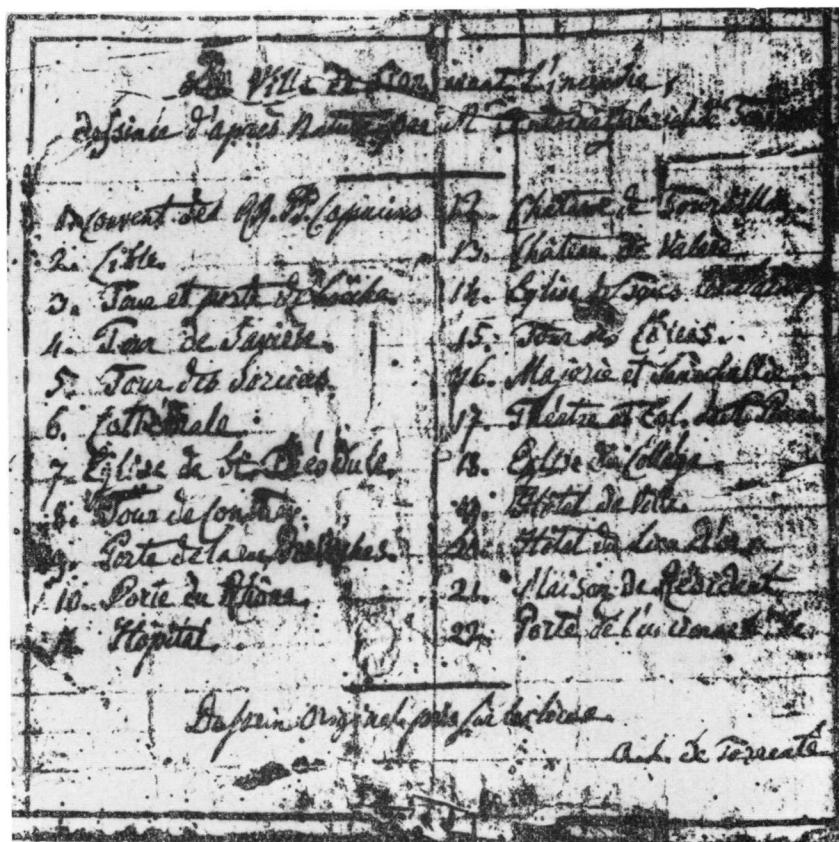 La Ville de Sion avant l'incendie,
dessinée d'après Nature par Mr
1. Couvent des RR. PP. Capucins
2. Cible.
3. Tour et porte de
4. Tour de Savièse.
5. Tour des Sorciers.
6. Cathédrale.
7. Eglise de St. Théodule.
8. Tour de
9. Porte de la rue des Vaches.
10. Porte du Rhône.
11. Hôpital.
12. Château de Tourbillon.
13. Château de Valère
14. Eglise de Tous les Saints
15. Tour des Chiens.
16. Majorie et
17. Théâtre et
18. Eglise du Collège.
19. Hôtel de Ville.
20. Hôtel du Lion d'or.
21. Maison du Résident.
22. Porte de
Dessein Original pris sur les lieux.
de Torrenté